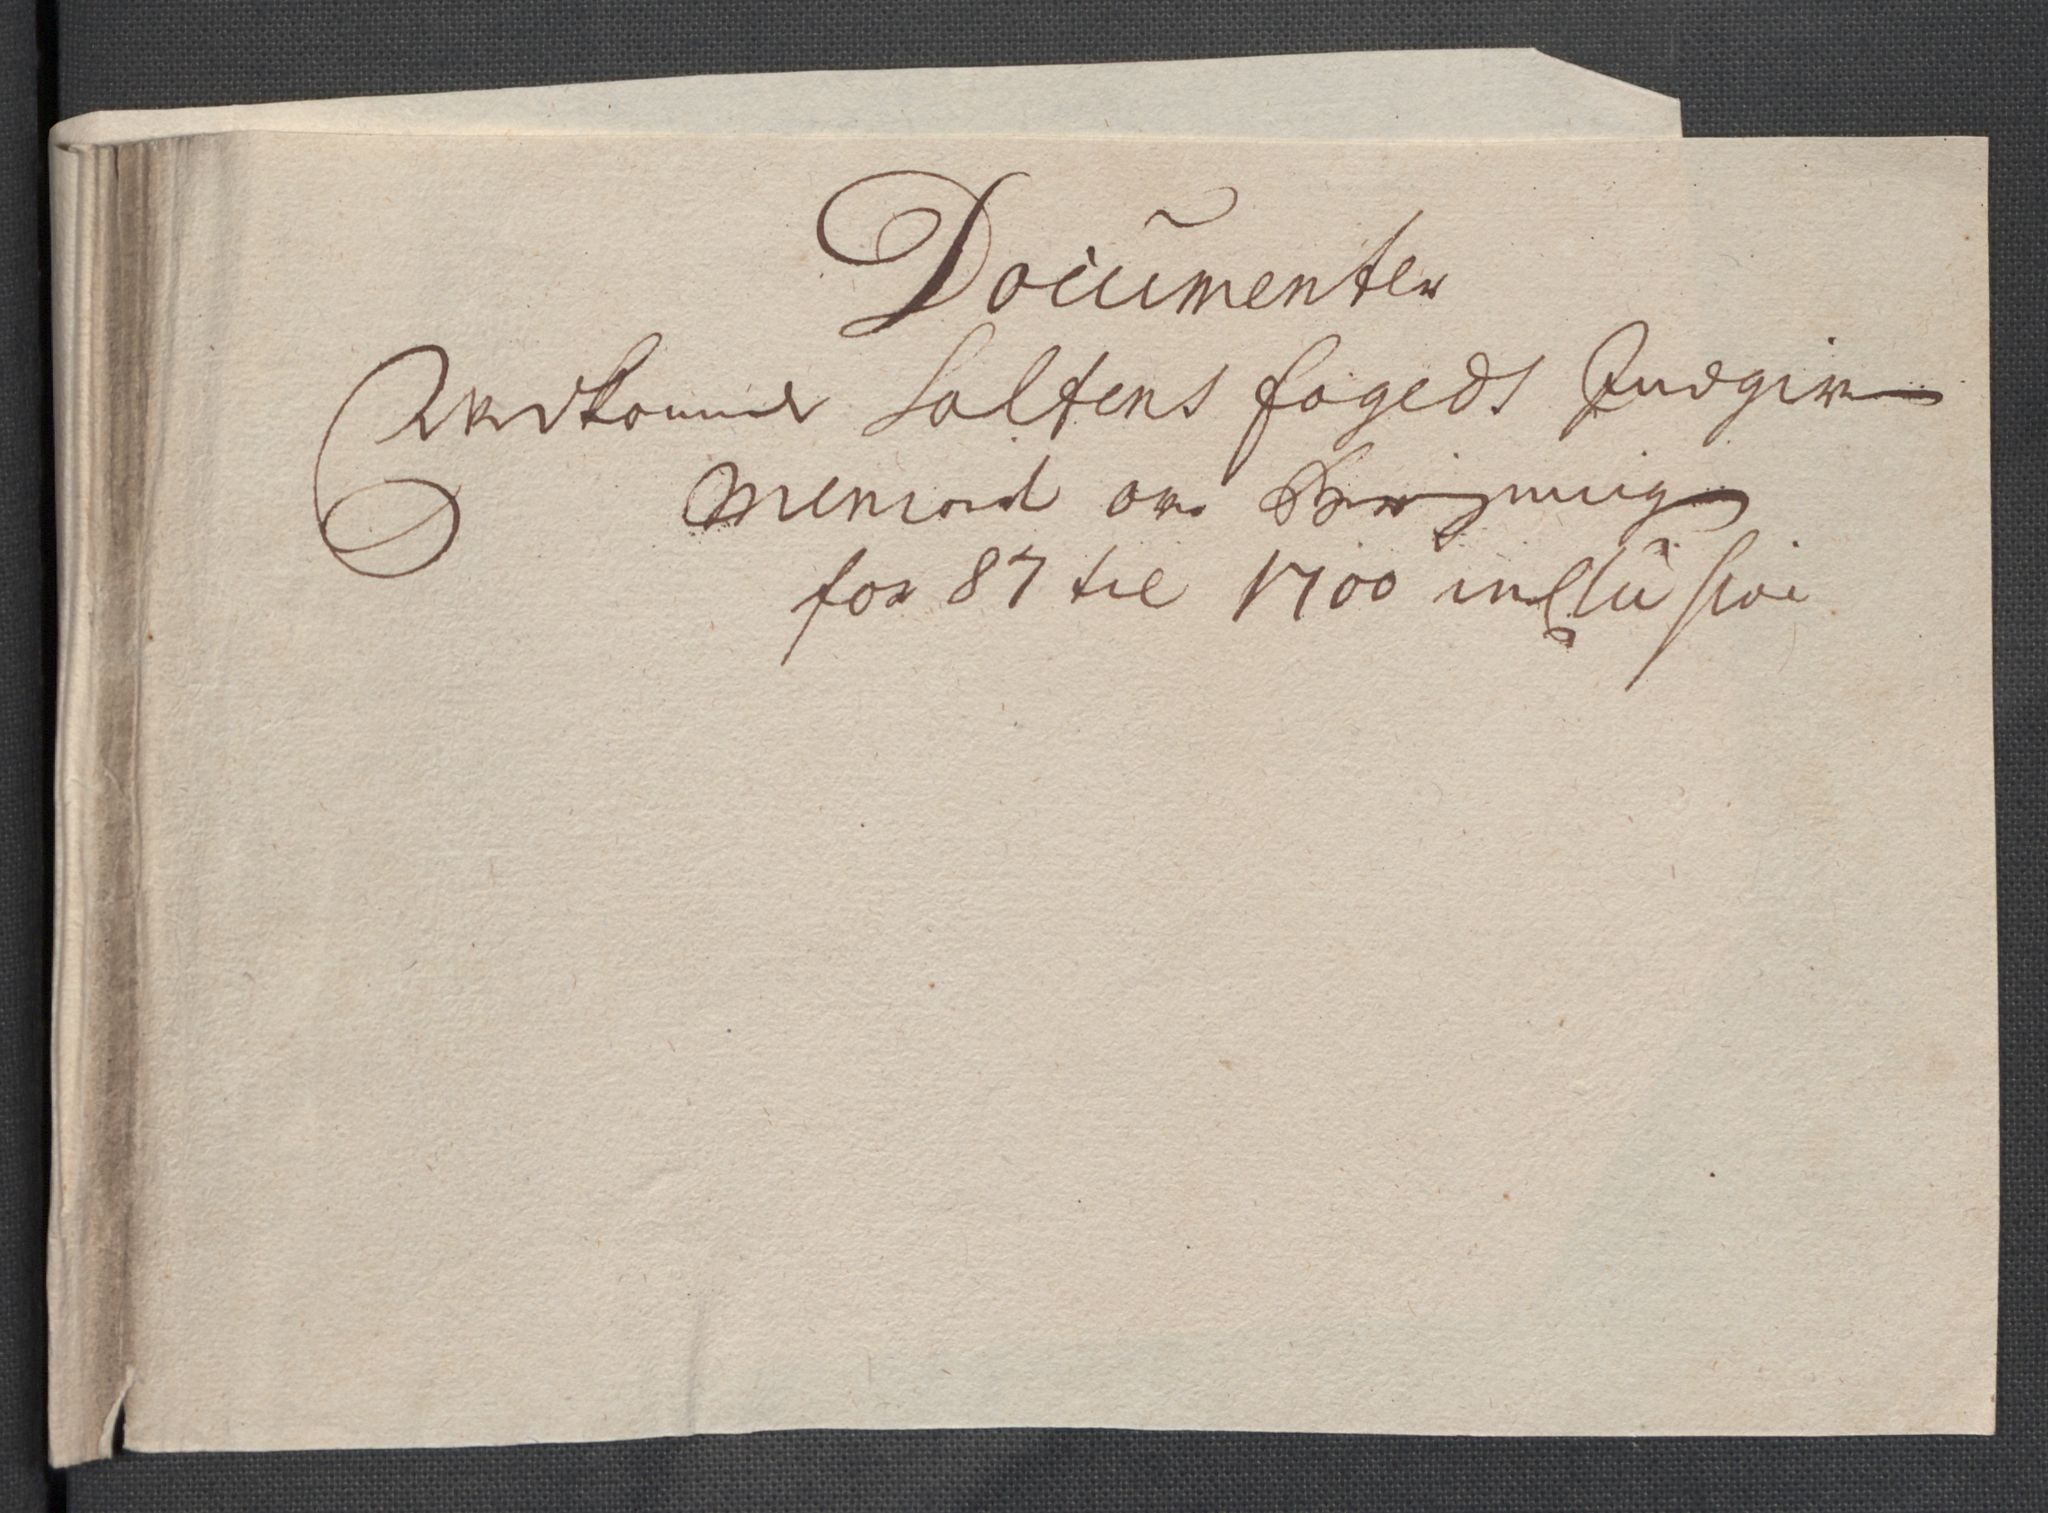 Documenter
Vedkommende Saltens fogeds Indgivne
Memorial og Beregning
for 87 til 1700 inclusive